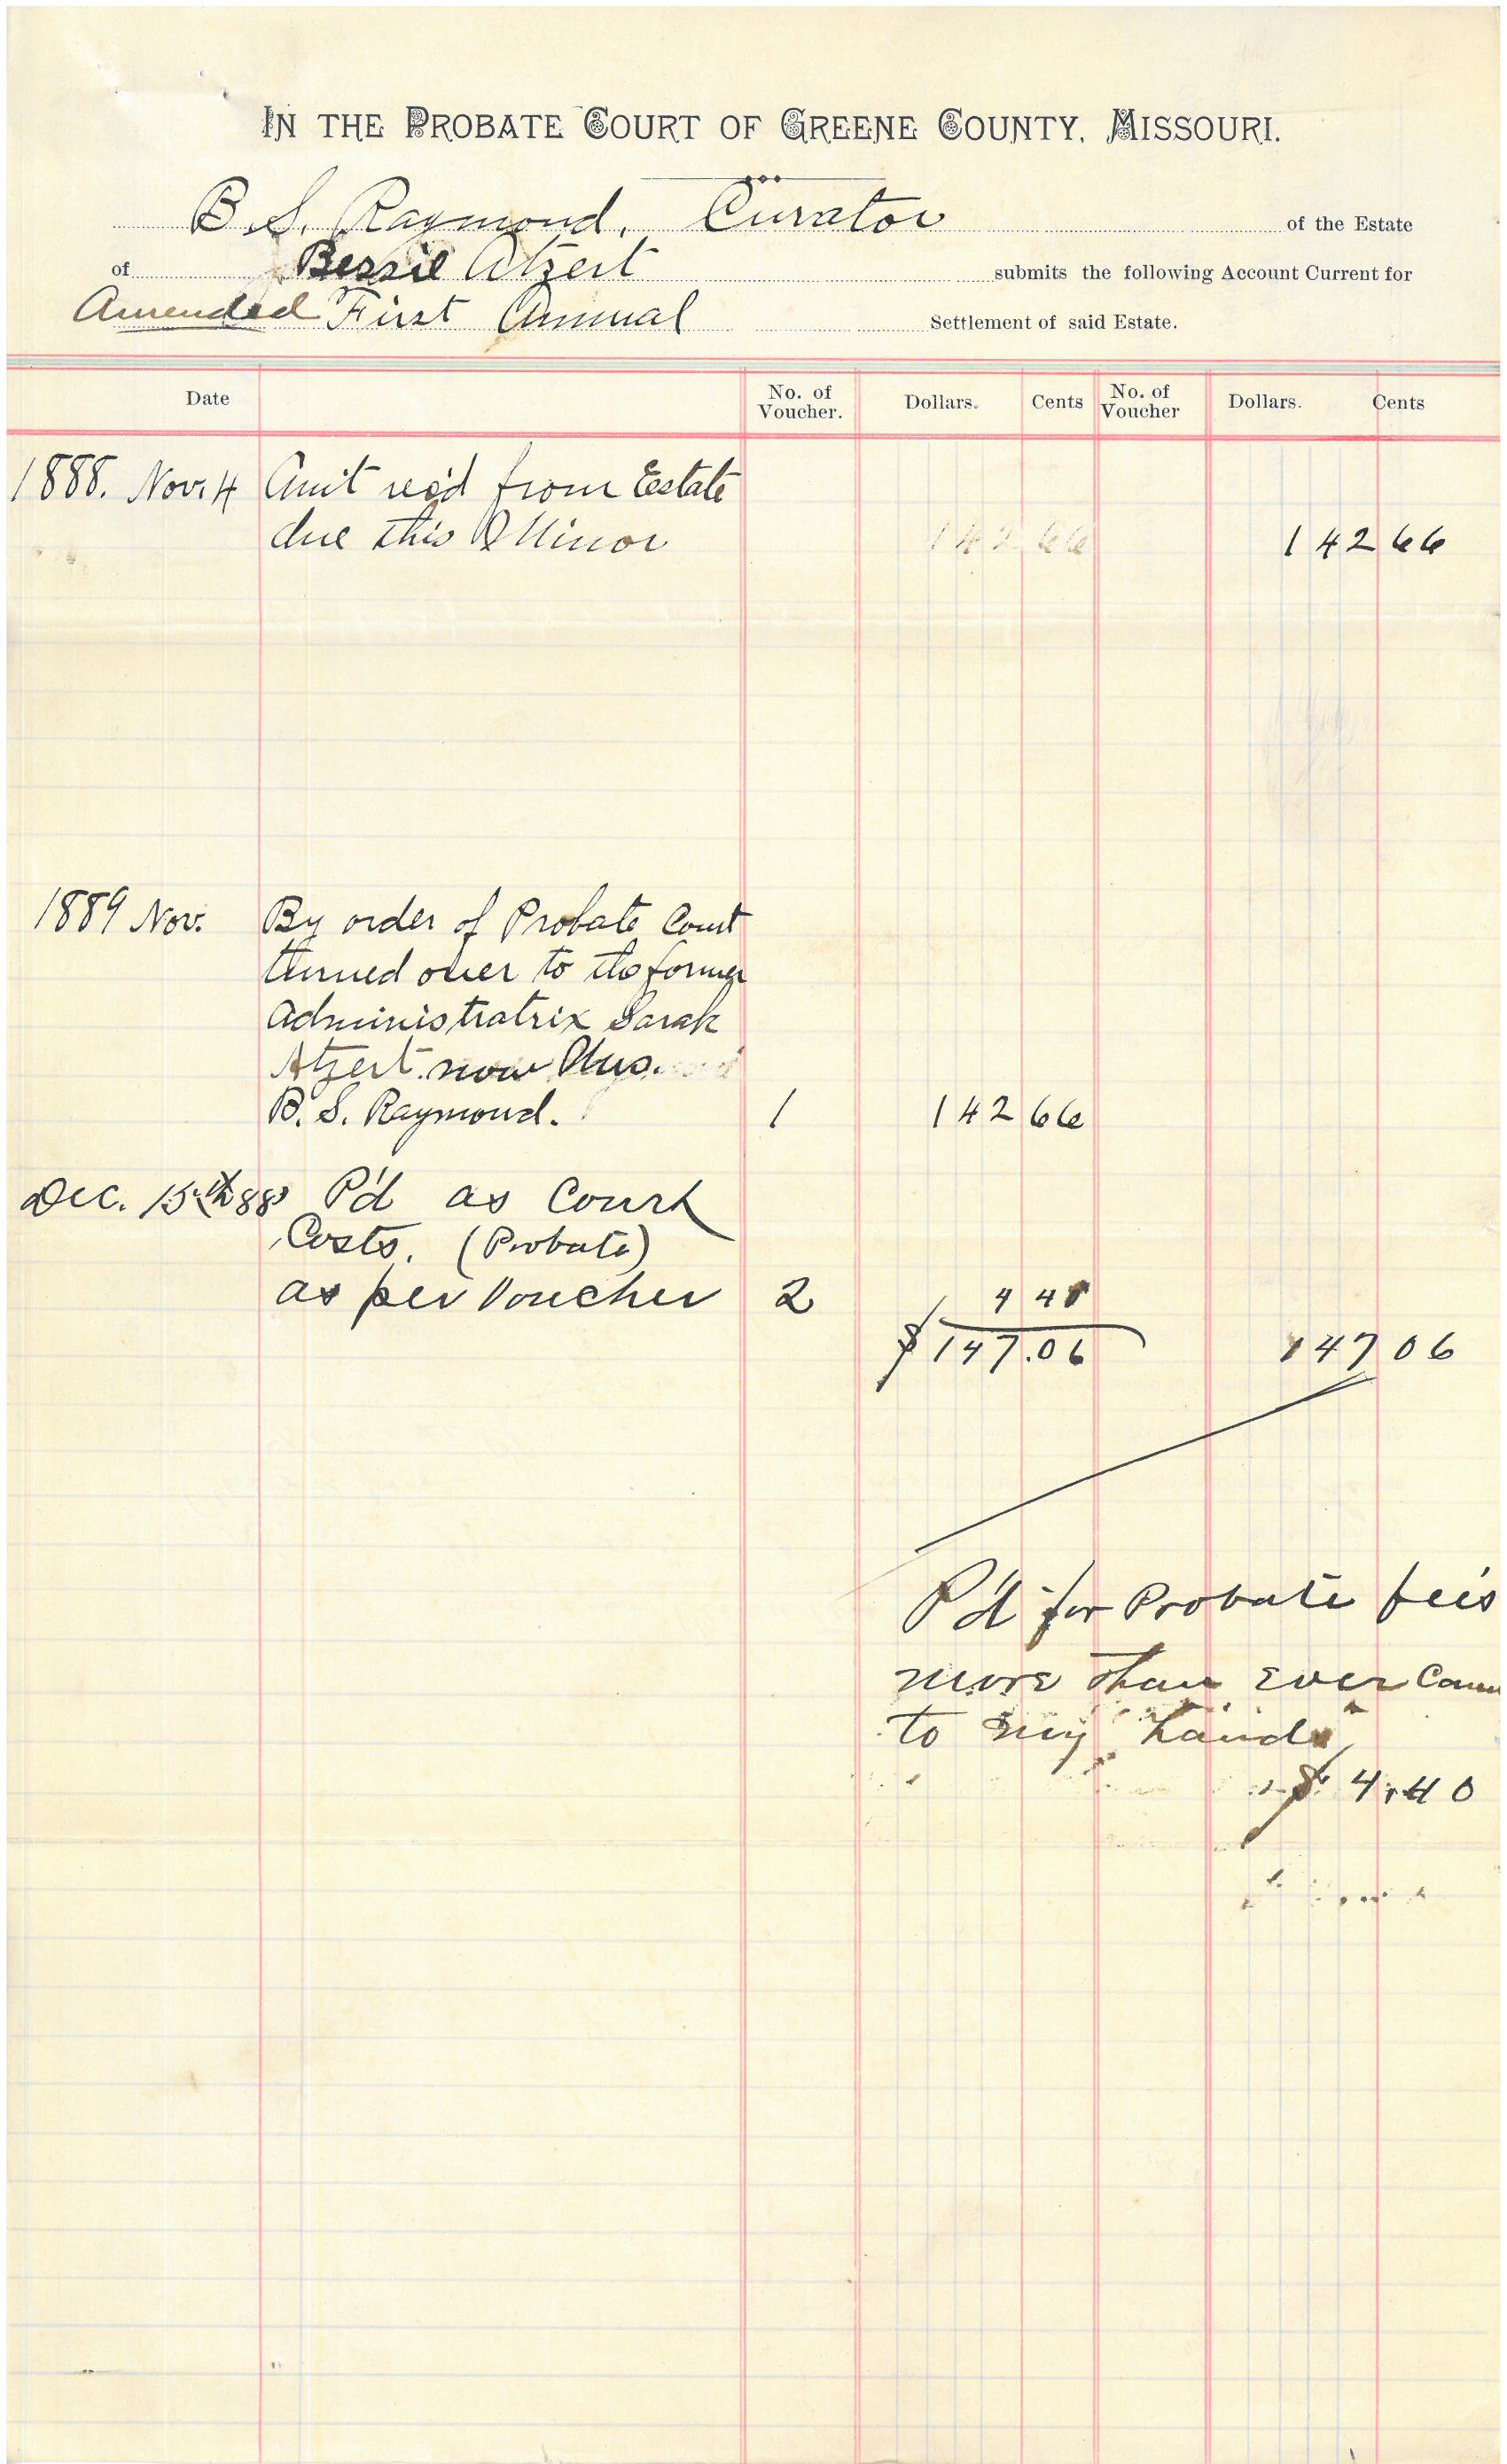 IN THE PROBATE COURT OF GREENE COUNTY, MISSOURI.
B. S. Raymond, Curator of the Estate
of Bessie Atzert submits the following Account Current for
Amended First Annual Settlement of said Estate.
Date No. of Voucher. Dollars. Cents No. of Voucher Dollars. Cents
1888. Nov. 4 Am't rec'd from Estate
due this Minor 142 66 142 66
1889 Nov. By order of Probate Court
turned over to the former
Administratrix Sarah
Atzert now Mrs.
B. S. Raymond. 1 142 66
Dec. 15th 88 P'd as Court
Costs. (Probate)
as per Voucher 2 4 40
$147.06 147 06
P'd for Probate fees
more than ever Came
to my hands
$ 4.40